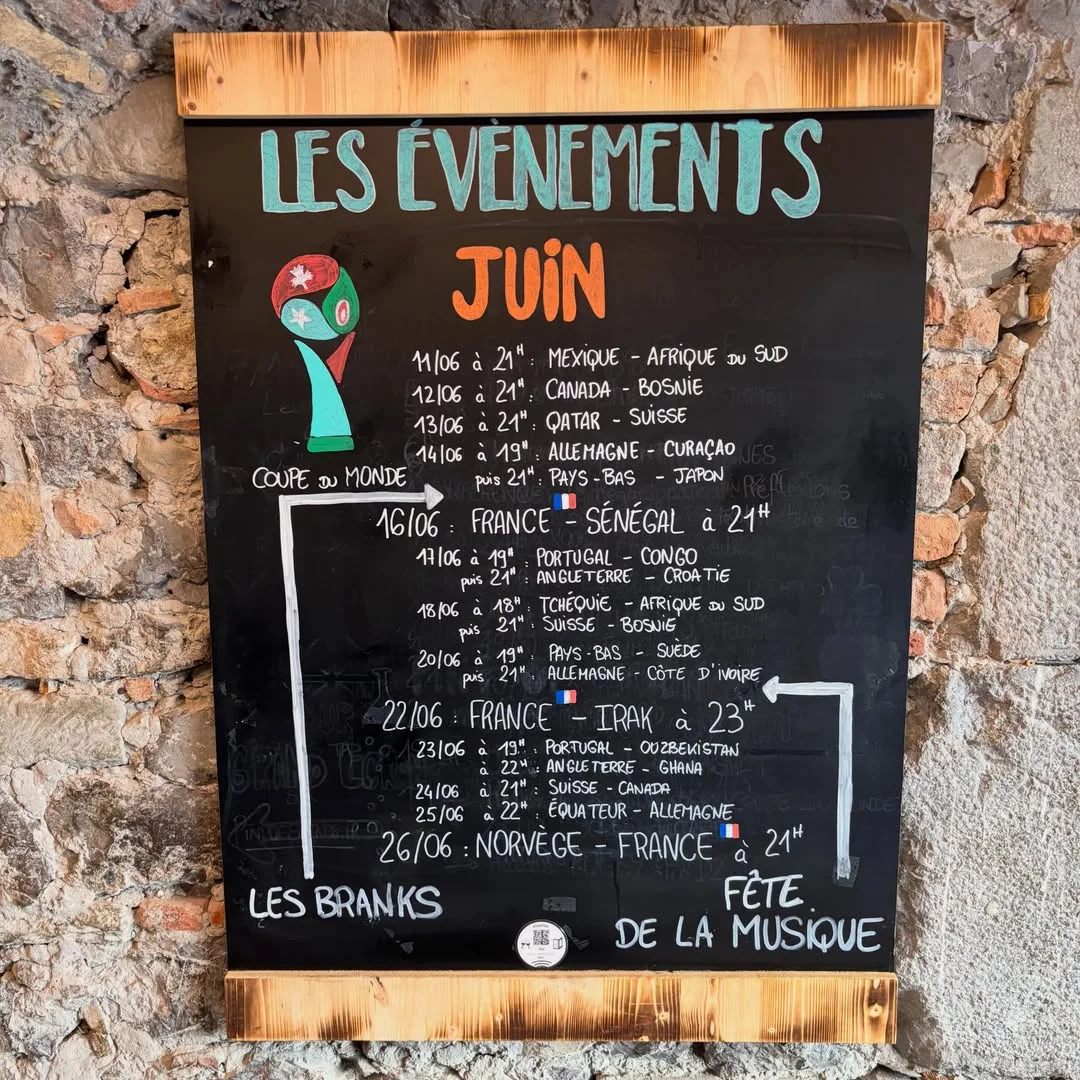 LES ÉVÈNEMENTS
JUiN
11/06 à 21H : MEXIQUE - AFRIQUE DU SUD
12/06 à 21H : CANADA - BOSNIE
13/06 à 21H : QATAR - SUISSE
14/06 à 19H : ALLEMAGNE - CURAÇAO
puis 21H : PAYS-BAS - JAPON
COUPE DU MONDE
16/06 : FRANCE - SÉNÉGAL à 21H
17/06 à 19H : PORTUGAL - CONGO
puis 21H : ANGLETERRE - CROATIE
18/06 à 18H : TCHÉQUIE - AFRIQUE DU SUD
puis 21H : SUISSE - BOSNIE
20/06 à 19H : PAYS-BAS - SUÈDE
puis 21H : ALLEMAGNE - CÔTE D'IVOIRE
22/06 : FRANCE - IRAK à 23H
23/06 à 19H : PORTUGAL - OUZBEKISTAN
à 22H : ANGLETERRE - GHANA
24/06 à 21H : SUISSE - CANADA
25/06 à 22H : ÉQUATEUR - ALLEMAGNE
26/06 : NORVÈGE - FRANCE à 21H
LES BRANKS
FÊTE
DE LA MUSIQUE